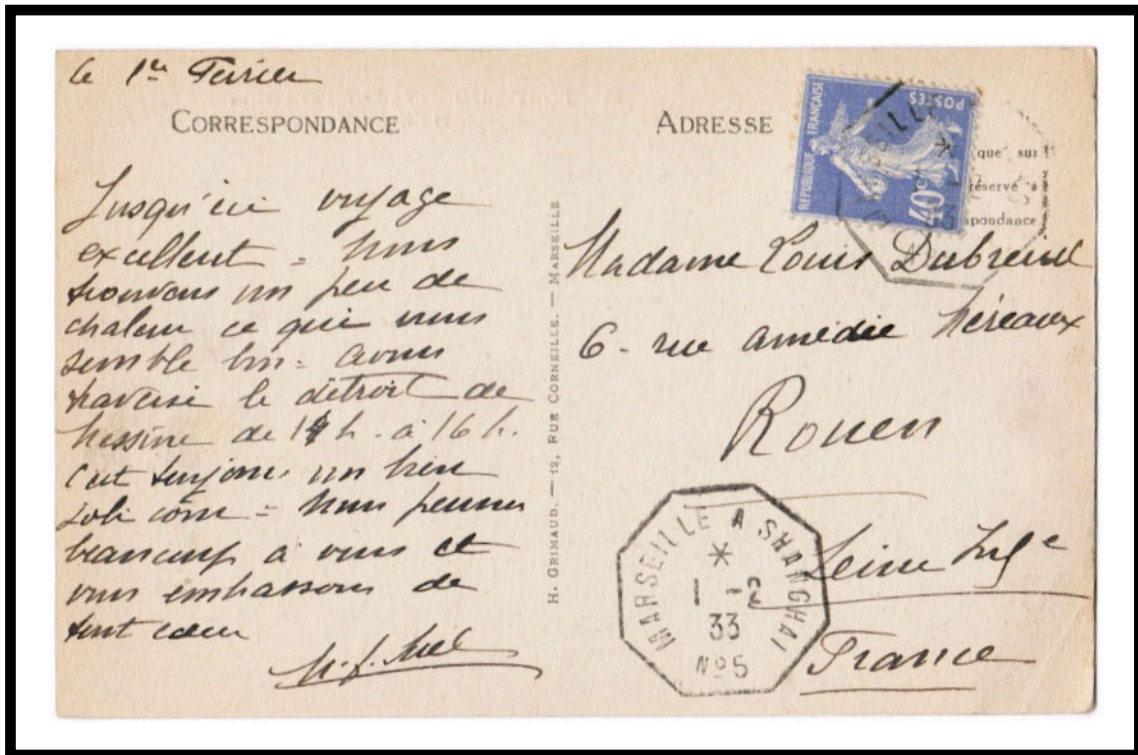 le 1er Fevrier
CORRESPONDANCE
Jusqu'ici voyage
excellent = nous
trouvons un peu de
chaleur ce qui nous
semble bon = avons
traversé le détroit de
Messine de 14 h. à 16 h.
c'est toujours un bien
joli coin = Nous pensons
beaucoup à vous et
vous embrassons de
tout coeur
H. GRIMAUD. — 12, RUE CORNEILLE. — MARSEILLE
ADRESSE
REPUBLIQUE FRANÇAISE
POSTES
40c
que sur
réservé à
spondance
Madame Louis Dubreuil
6 - rue Amédée Méreaux
Rouen
Seine Infe
France
MARSEILLE A SHANGHAI
*
1 -2
33
No 5